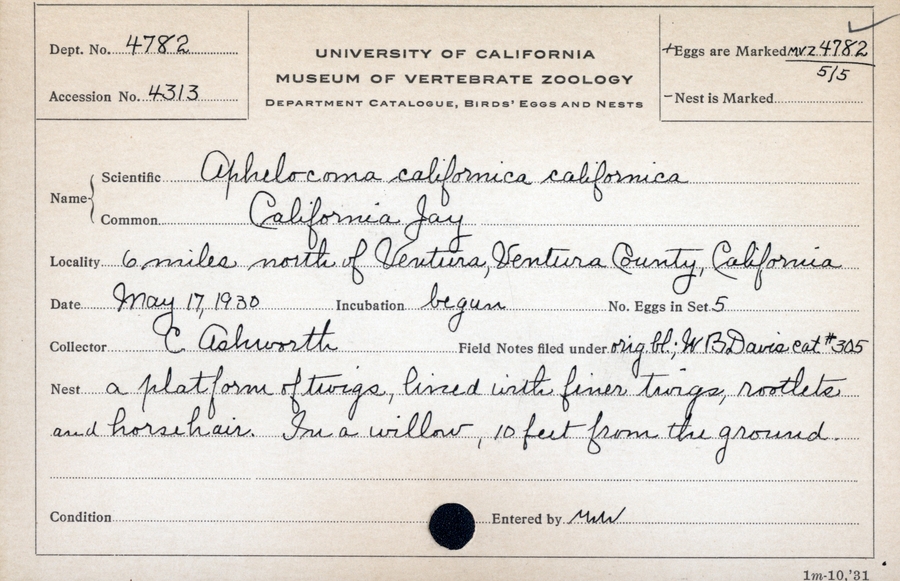 Dept. No. 4782
Accession No. 4313
UNIVERSITY OF CALIFORNIA
MUSEUM OF VERTEBRATE ZOOLOGY
DEPARTMENT CATALOGUE, BIRDS' EGGS AND NESTS
+Eggs are Marked MVZ 4782
5/5
-Nest is Marked
Name
Scientific Aphelocoma californica californica
Common California Jay
Locality 6 miles north of Ventura, Ventura County, California
Date May 17, 1930 Incubation begun No. Eggs in Set 5
Collector C Ashworth Field Notes filed under orig. bl; W B Davis cat #305
Nest a platform of twigs, lined with finer twigs, rootlets
and horsehair. In a willow, 10 feet from the ground.
Condition Entered by
1m-10,'31